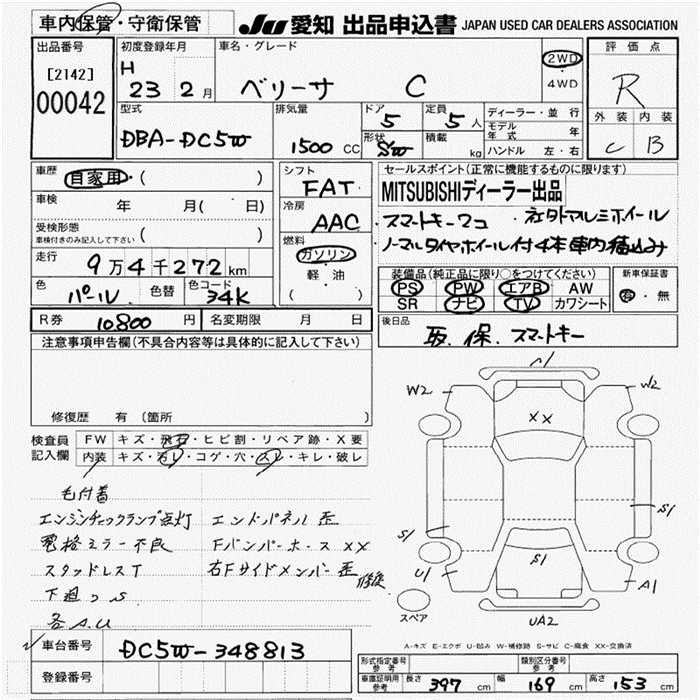 車内保管・守衛保管
JU 愛知 出品申込書 JAPAN USED CAR DEALERS ASSOCIATION
出品番号
[2142]
00042
初度登録年月
H 23 2月
車名・グレード
ベリーサ C
2WD
4WD
評価点
R
外装 内装
C B
型式
DBA-DC5W
排気量
1500 CC
ドア
5
形状
5W
定員
5人
積載
kg
ディーラー・並行
モデル年式 年
ハンドル 左・右
車歴
自家用 ( )
車検
年 月( 日)
受検形態
車検付きのみ記入して下さい
( )
走行
9万4千272km
色
パール
色替
色コード
34K
シフト
FAT
冷房
AAC
燃料
ガソリン
軽・油
( )
セールスポイント(正常に機能するものに限ります)
MITSUBISHIディーラー出品
スマートキー2コ 社外アルミホイール
ノーマルタイヤホイール付4本車内積込み
装備品(純正品に限り○をつけてください)
PS PW エアB AW
SR ナビ TV カワシート
新車保証書
有・無
R券 10800円
名変期限 月 日
後日品
取.保.スマートキー
注意事項申告欄(不具合内容等は具体的に記入して下さい)
修復歴 有 〔箇所
検査員
記入欄
FW キズ・飛石・ヒビ割・リペア跡・X要
内装 キズ・汚レ・コゲ・穴・スレ・キレ・破レ
毛付着
エンジンチェックランプ点灯
電格ミラー不良
スタッドレスT
下廻つS
各A.U
エンドパネル歪
Fバンパーホースxx
右Fサイドメンバー歪 修後
車台番号 DC5W-348813
登録番号
A1
W2
W2
XX
S1
S1
S1
U1
A1
UA2
スペア
A-キズ E-エクボ U-凹み W-補修跡 S-サビ C-腐食 XX-交換済
形式指定番号
参考
類別区分番号
参考
車庫証明用
参考
長さ 397 cm
幅 169 cm
高さ 153 cm